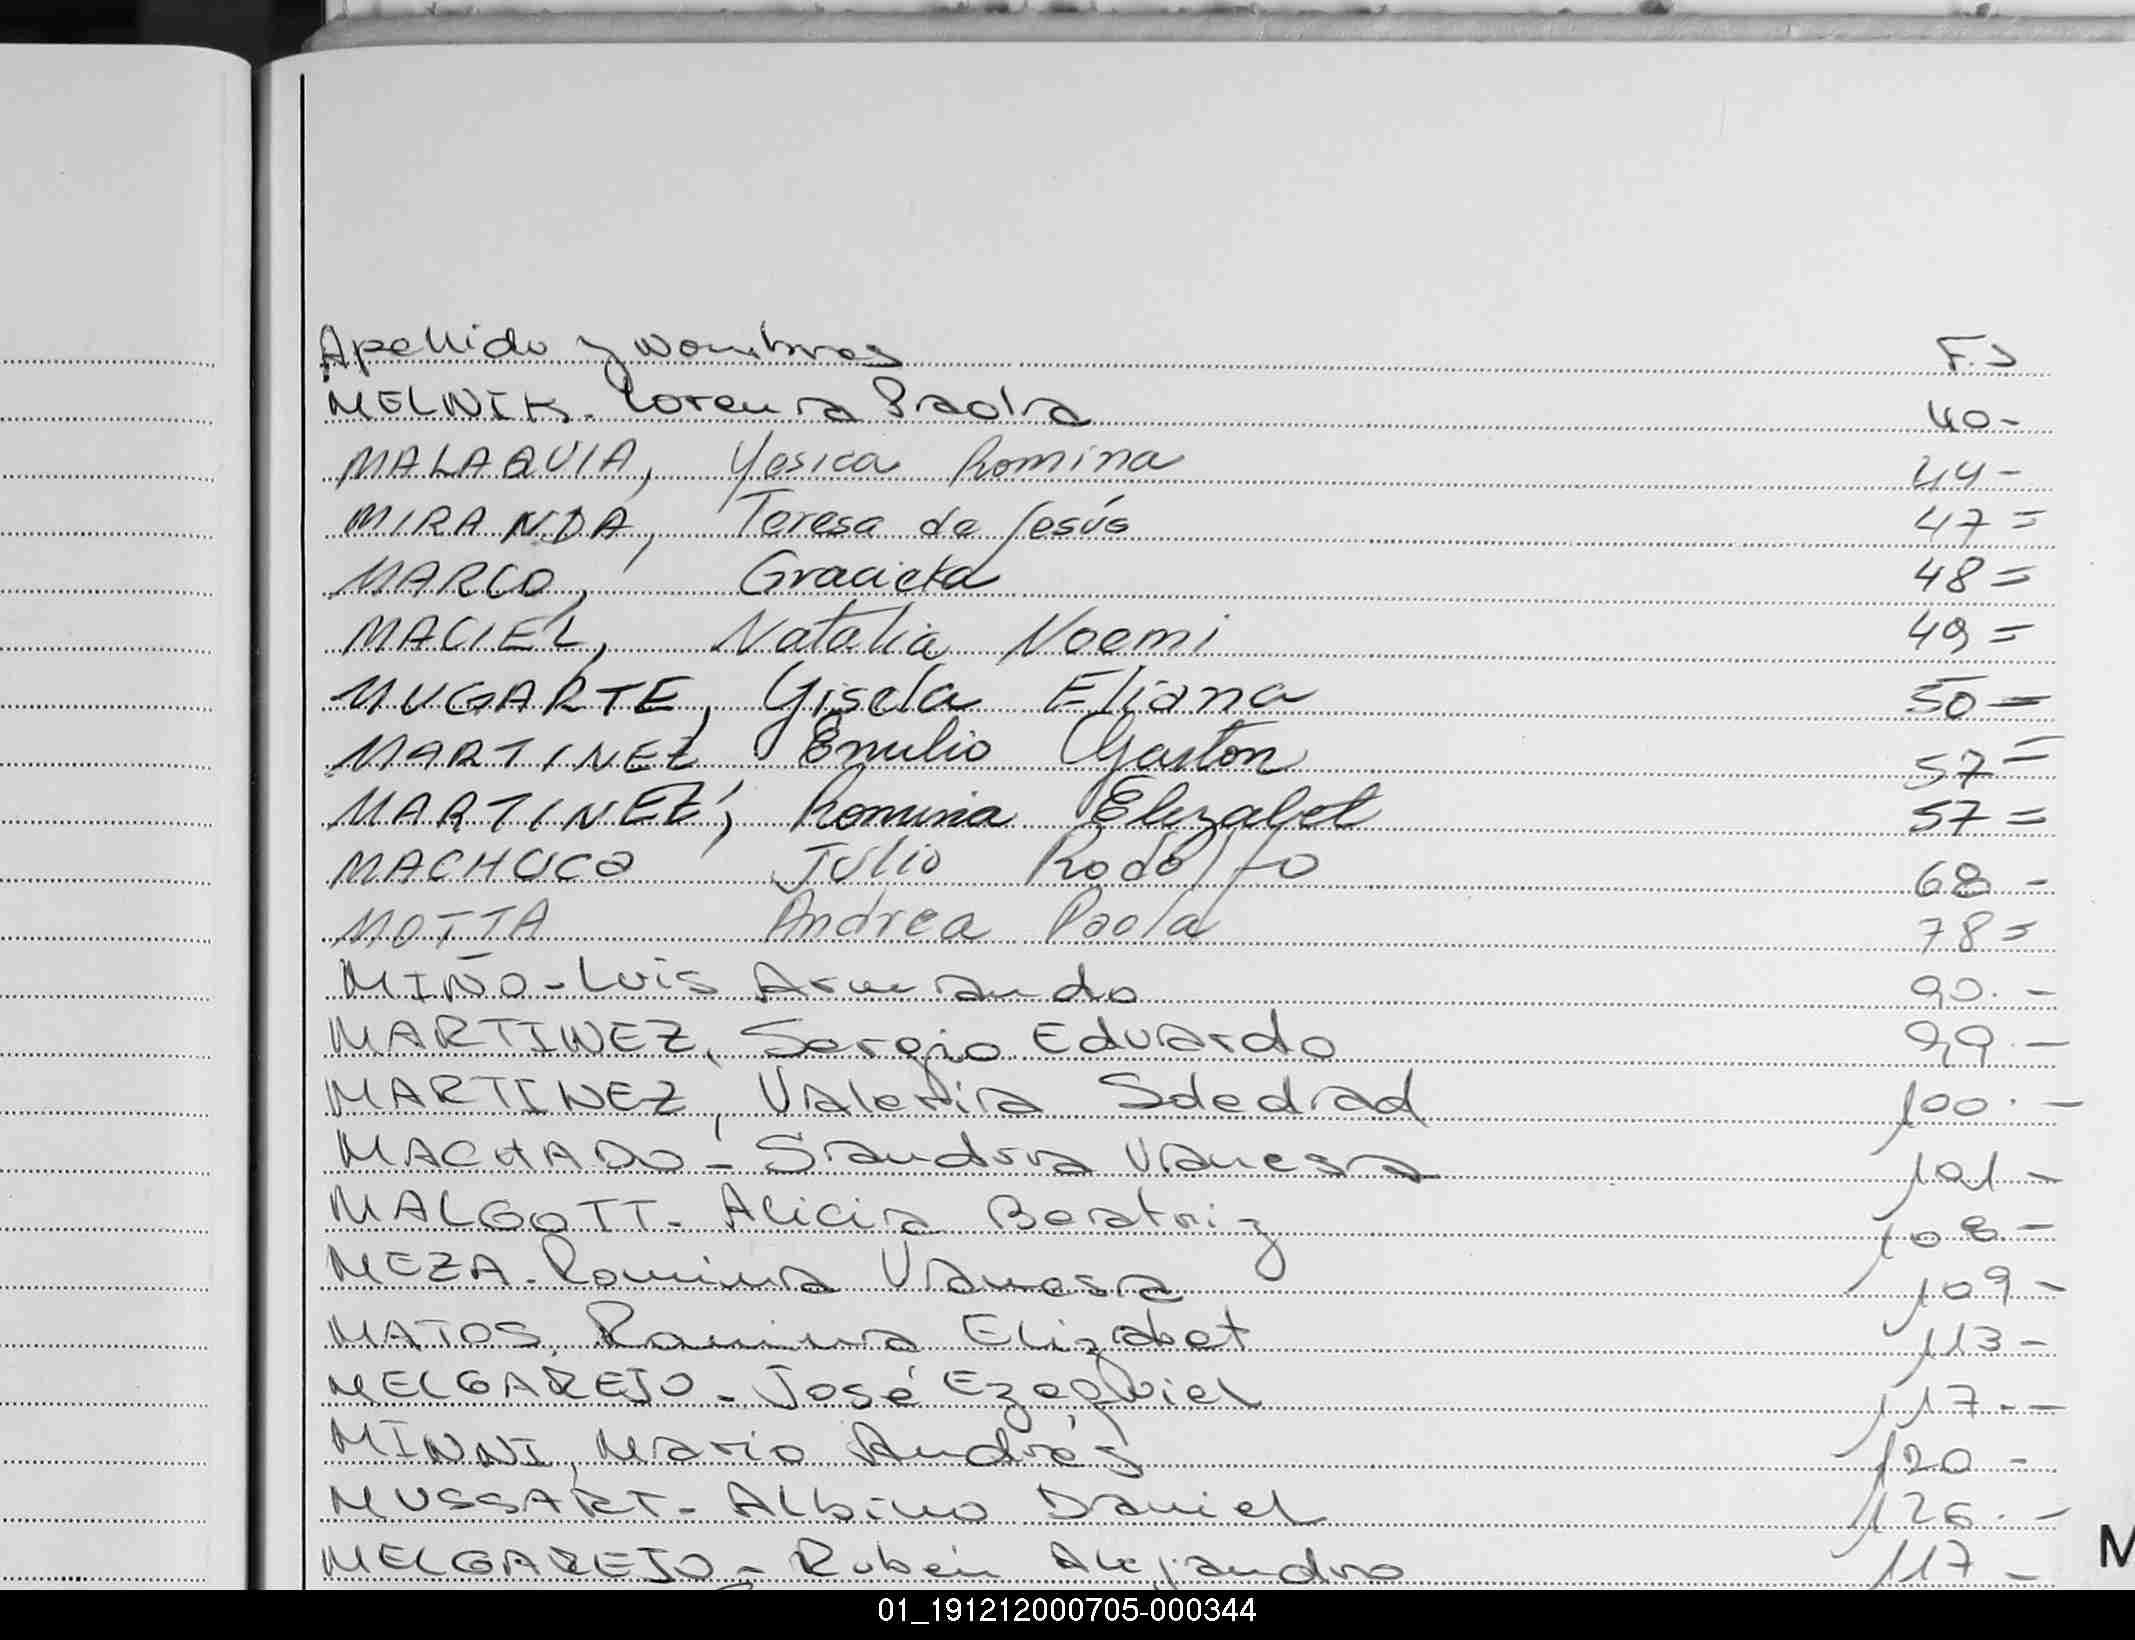 Apellido y Nombres F.S
MELNIK. Lorena Paola 40-
MALAQUIA, Yesica Romina 44-
MIRANDA, Teresa de Jesús 47=
MARCO, Graciela 48=
MACIEL, Natalia Noemi 49=
MUGARTE, Gisela Eliana 50=
MARTINEZ Emilio Gastón 57=
MARTINEZ, Romina Elizabet 57=
MACHUCa Julio Rodolfo 68-
MOTTA Andrea Paola 78=
MIÑO-Luis Armando 90.-
MARTINEZ, Sergio Eduardo 99.-
MARTINEZ, Valeria Soledad 100.-
MACHADO - Sandra Vanesa 101-
MALGOTT- Alicia Beatriz 108-
MEZA-Romina Vanesa 109-
MATOS, Romina Elizabet 113-
MELGAREJO - José Ezequiel 117.-
MINNI, Mario Andrés 120-
MUSSART- Albino Daniel 126.-
MELGAREJO - Rubén Alejandro 117-
M
01_191212000705-000344